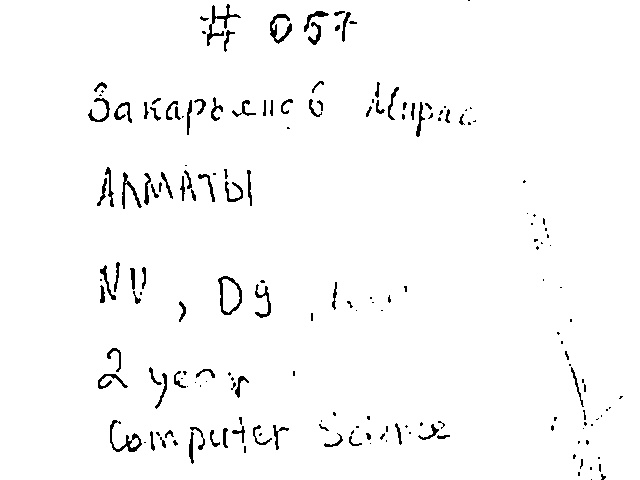 # 057
Закарьянов Мирас
АЛМАТЫ
NU, D9,
2 year
Computer Science